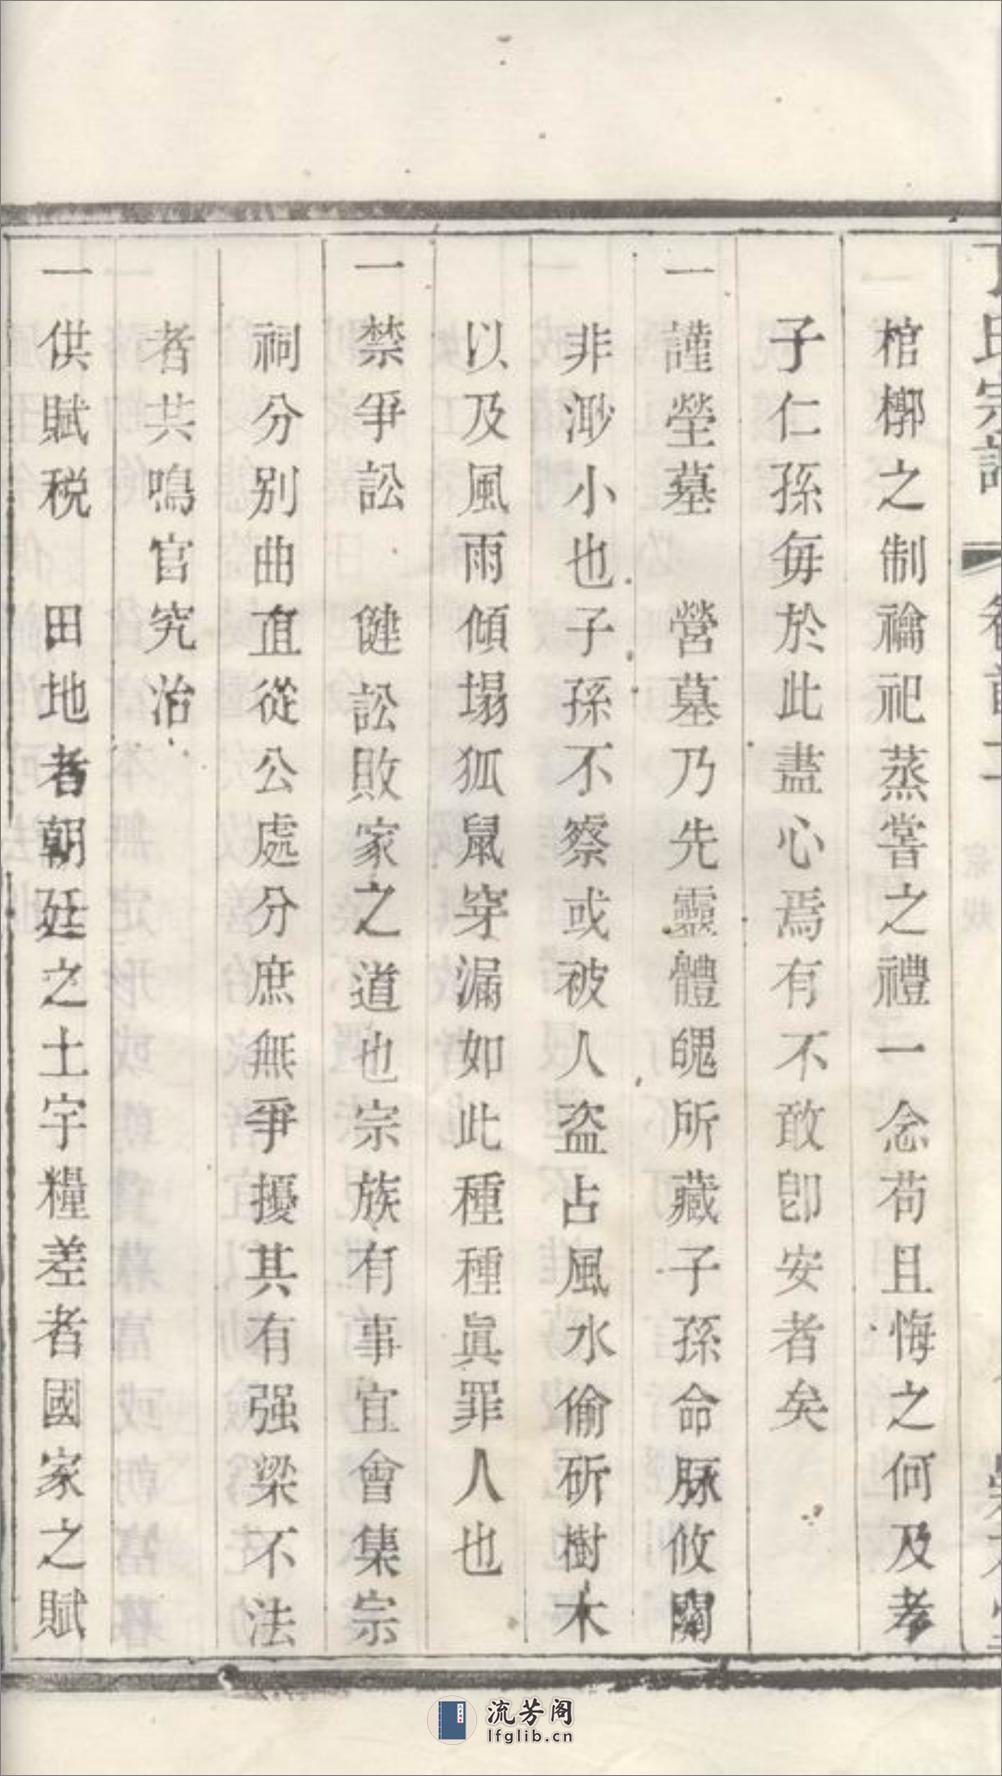 氏宗譜
棺槨之制禴祀蒸嘗之禮一念苟且悔之何及孝
子仁孫每於此盡心焉有不敢卽安者矣
一謹塋墓　營墓乃先靈體魄所藏子孫命脉攸關
非渺小也子孫不察或被人盜占風水偷斫樹木
以及風雨傾塌狐鼠穿漏如此種種眞罪人也
一禁爭訟　健訟敗家之道也宗族有事宜會集宗
祠分別曲直從公處分庶無爭擾其有强梁不法
者共鳴官究治
一供賦税　田地者朝廷之土宇糧差者國家之賦
流芳阁
lfglib.cn